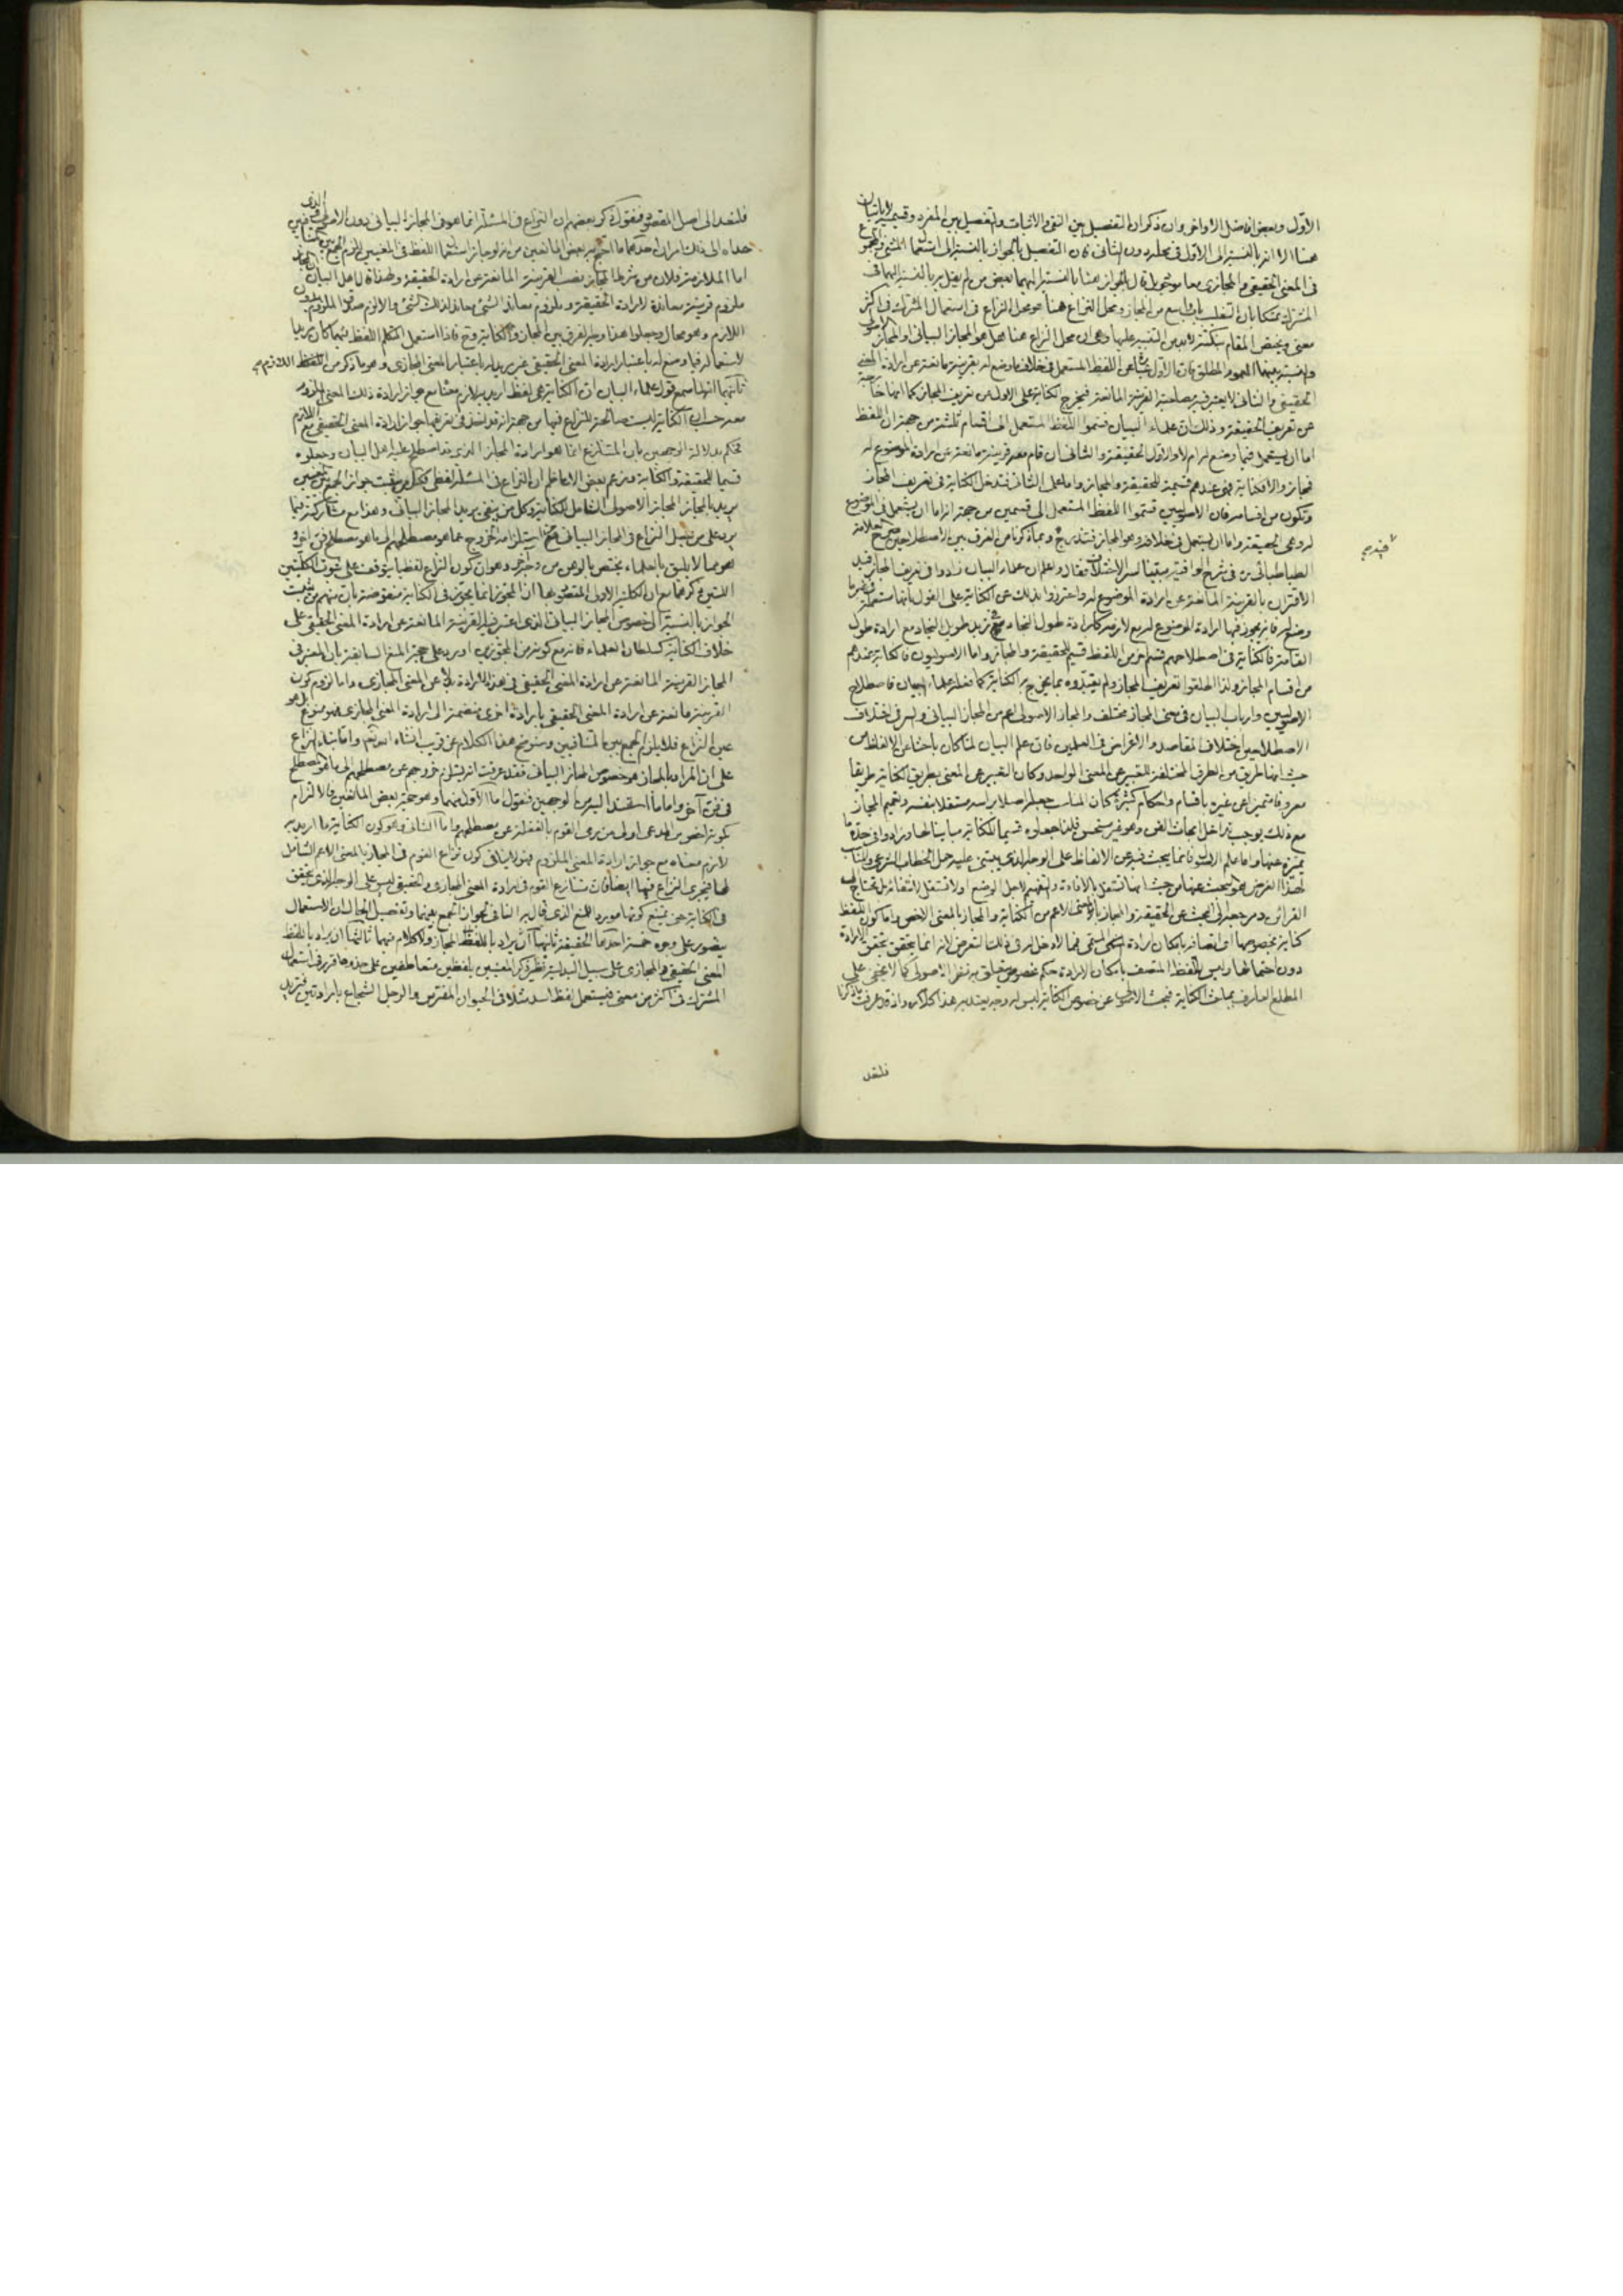 الاول وبعض افاضل الاواخر وان ذكر ان التفصيل بين النفي والاثبات والتفصيل بين المفرد وقسيميه لا ياتيان
هنا الا انه بالنسبة الى الاول في محله دون الثاني فان التفصيل بالجواز بالنسبة الى استعمال المثنى والمجموع
في المعنى الحقيقي والمجازي معا
المشترك متمسكا بان التغليب باب واسع من المجاز ومحل النزاع هنا هو محل النزاع في استعمال المشترك في اكثر
معنى ويختص المقام بنكتة لابد من التنبيه عليها وهي ان محل النزاع هنا هل هو المجاز البياني او المجاز الاصولي
والنسبة بينهما العموم المطلق فان الاول عن اللفظ المستعمل في خلاف ما وضع له بقرينة مانعة عن ارادة المعنى
الحقيقي والثاني لا يعتبر فيه مصاحبة القرينة المانعة فيخرج الكناية على الاول من تعريف المجاز كما انها خارجة
عن تعريف الحقيقة وذلك ان علماء البيان قسموا اللفظ المستعمل الى اقسام ثلثة من جهة ان اللفظ
اما ان يستعمل فيما وضع له ام لا والاول الحقيقة والثاني ان قام معه قرينة مانعة عن ارادة الموضوع له
فمجاز والا فكناية فهي عندهم قسيمة للحقيقة والمجاز واما على الثاني فتدخل الكناية في تعريف المجاز
وتكون من اقسامه فان الاصوليين قسموا اللفظ المستعمل الى قسمين من جهة انه اما ان يستعمل في الموضوع
له وهي الحقيقة واما ان يستعمل في خلافه وهو المجاز فتندرج فيه وما ذكرنا من الفرق بين الاصطلاحين صرح به العلامة
الطباطبائي ره في شرح الوافية مبينا لسر الاختلاف فقال واعلم ان علماء البيان زادوا في تعريف المجاز قيد
الاقتران بالقرينة المانعة عن ارادة الموضوع له واحترزوا بذلك عن الكناية على القول بانها مستعملة في غير ما
وضع له فانه يجوز فيها ارادة الموضوع له مع لازمه كارادة طول النجاد في زيد طويل النجاد مع ارادة طول
القامة فالكناية في اصطلاحهم قسم من اللفظ قسيم للحقيقة والمجاز واما الاصوليون فالكناية عندهم
من اقسام المجاز ولذا اطلقوا تعريف المجاز ولم يقيدوه بما يخرج به الكناية كما فعله علماء البيان فاصطلاح
الاصوليين وارباب البيان في معنى المجاز مختلف والمجاز الاصولي اعم من المجاز البياني والسر في اختلاف
الاصطلاحين اختلاف المقاصد والاغراض في العلمين فان علم البيان لما كان باحثا عن الالفاظ من
حيث انها طريق من الطرق المختلفة للتعبير عن المعنى الواحد وكان التعبير عن المعنى بطريق الكناية طريقا
معروفا متميزا عن غيره باقسام واحكام كثيرة كان المناسب جعله اصلا براسه مستقلا بنفسه وتعميم المجاز
مع ذلك يوجب تداخل ابحاث الفن وهو غير مستحسن فلذا جعلوه قسيما للكناية مباينا لها وزادوا في حده ما
يميزه عنها واما علم الاصول فانما يبحث فيه عن الالفاظ على الوجه الذي يبتني عليه حمل الخطاب الشرعي والمناسب
لهذا الغرض هو البحث عنها من حيث انها تستقل بالافادة والتفهيم لاجل الوضع او لا تستقل لانتفائه بل تحتاج الى
القرائن ومرجعه الى البحث عن الحقيقة والمجاز بالمعنى الاعم من الكناية والمجاز بالمعنى الاخص واما كون اللفظ
كناية بخصوصها اي اتصافه بامكان ارادة المسمى فمما لا دخل له في ذلك الغرض لانه انما يتحقق بتحقق الارادة
دون احتمالها وليس للفظ المتصف بامكان الارادة حكم مخصوص يتعلق به نظر الاصولي كما لا يخفى على
المطلع العارف بمباحث الكناية فبحث الاصولي عن خصوص الكناية ليس له وجه يعتد به هذا كلامه واذ قد عرفت ما ذكرنا
فلنعد
فلنعد الى اصل المقصود فنقول ذكر بعضهم ان النزاع في المسئلة انما هو في المجاز البياني دون الاصولي والذي
حداه الى ذلك امران احدهما ما احتج به بعض المانعين من انه لو جاز استعمال اللفظ في المعنيين للزم الجمع بين المتنافيين
اما الملازمة فلان من شرط المجاز نصب القرينة المانعة عن ارادة الحقيقة ولهذا قال اهل البيان ان المجاز
ملزوم قرينة معاندة لارادة الحقيقة وملزوم معاند الشيء معاند لذلك الشيء والا لزم صدق الملزوم بدون
اللازم وهو محال وجعلوا هذا وجه الفرق بين المجاز والكناية وح فاذا استعمل المتكلم اللفظ فيهما كان مريدا
لاستعماله فيما وضع له باعتبار ارادة المعنى الحقيقي غير مريد له باعتبار المعنى المجازي وهو ما ذكر من اللازم
ثانيهما انهما سمع قول علماء البيان ان الكناية هي لفظ اريد به لازم معناه مع جواز ارادة ذلك المعنى الملزوم
معه حسب ان الكناية ليست صالحة للنزاع فيها من جهة انه قد اخذ في تعريفها جواز ارادة المعنى الحقيقي مع اللازم
فحكم بدلالة الوجهين بان المتنازع انما هو ارادة المجاز الذي قد اصطلح عليه اهل البيان وجعلوه
قسيما للحقيقة والكناية وزعم بعض الاعاظم ان النزاع في المسئلة لفظي فكل من يثبت جواز الجمع بين المعنيين
يريد بالمجاز المجاز الاصولي الشامل للكناية وكل من ينفي يريد المجاز البياني وهذا مع مشاركته فيما
يرد على من يخيل النزاع في المجاز البياني من استلزامه الخروج عما هو مصطلحهم الى ما هو مصطلح فن اخر و
هو مما لا يليق بالعلماء يختص بالوهن من وجه اخر وهو ان كون النزاع لفظيا يتوقف على ثبوت الكليتين
اللتين ذكرهما مع ان الكلية الاولى المنطوق بها ان المجوز انما يجوز في الكناية منقوضة بان منهم من يثبت
الجواز بالنسبة الى خصوص المجاز البياني الذي اعتبر فيه القرينة المانعة عن ارادة المعنى الحقيقي على
خلاف الكناية كسلطان العلماء فانه مع كونه من المجوزين اورد على حجة المنع السابقة بان المعتبر في
المجاز القرينة المانعة عن ارادة المعنى الحقيقي في هذه الارادة بدلا عن المعنى المجازي واما لزوم كون
القرينة مانعة عن ارادة المعنى الحقيقي بارادة اخرى منضمة الى ارادة المعنى المجازي فهو ممنوع بل هو
عين النزاع فلا يلزم الجمع بين المتنافيين وسنوضح هذا الكلام عن قريب انشاء الله تعالى واما بناء النزاع
على ان المراد بالمجاز هو خصوص المجاز البياني فقد عرفت انه يستلزم خروجهم عن مصطلحهم الى ما هو مصطلح
في فن آخر واما ما استند اليه من الوجهين فنقول اما الاول منهما وهو حجة بعض المانعين فالالتزام
بكونه اخص من المدعى اولى من رمي القوم بالغفلة عن مصطلحهم واما الثاني وهو كون الكناية ما اريد به
لازم معناه مع جواز ارادة المعنى الملزوم فهو لا ينافي كون نزاع القوم في المجاز بالمعنى الاعم الشامل
لها فيجري النزاع فيها ايضا فان تنازع القوم في ارادة المعنى المجازي والحقيقي ليس على الوجه الذي يتحقق
في الكناية حتى يمتنع كونها موردا للمنع الذي قال به النافي لجواز الجمع بينهما وتفصيل الحال ان الاستعمال
يتصور على وجوه خمسة احدها الحقيقة ثانيها ان يراد باللفظ المجاز ولا كلام فيهما ثالثها ان يراد باللفظ
المعنى الحقيقي والمجازي على سبيل البدلية نظير ذكر المعنيين بلفظين متعاطفين على حذو ما قرر في استعمال
المشترك في اكثر من معنى فيستعمل لفظ اسد مثلا في الحيوان المفترس والرجل الشجاع بارادتين فيريد